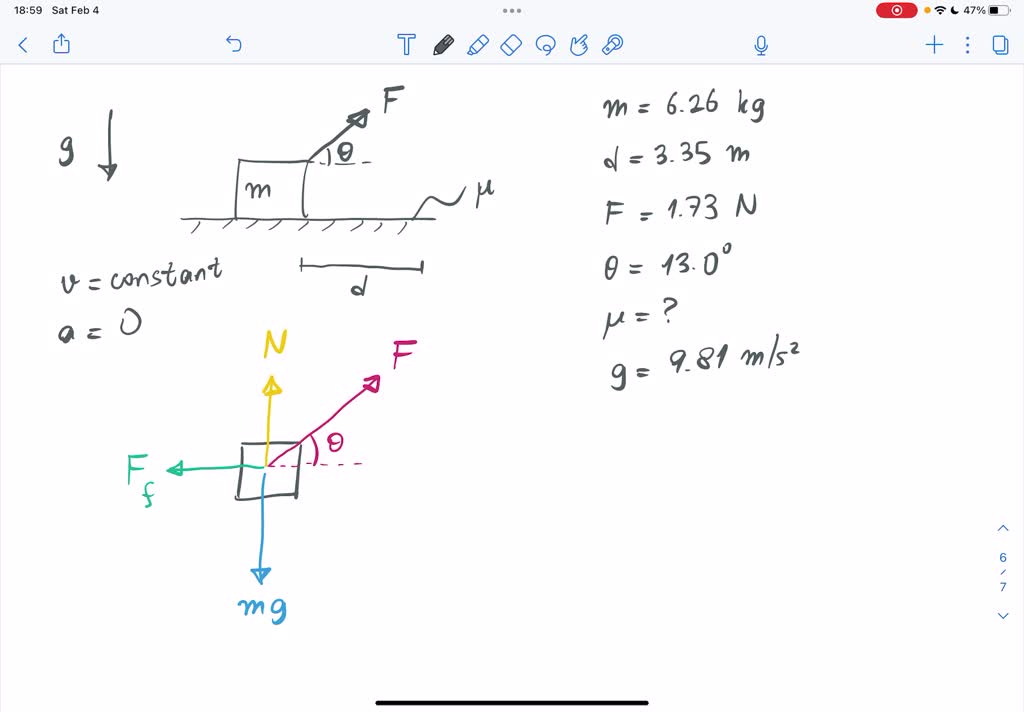 18:59 Sat Feb 4
47%
F
g
θ
m
μ
d
v = constant
a = 0
N
F
θ
F_f
mg
m = 6.26 kg
d = 3.35 m
F = 1.73 N
θ = 13.0°
μ = ?
g = 9.81 m/s²
6
/
7